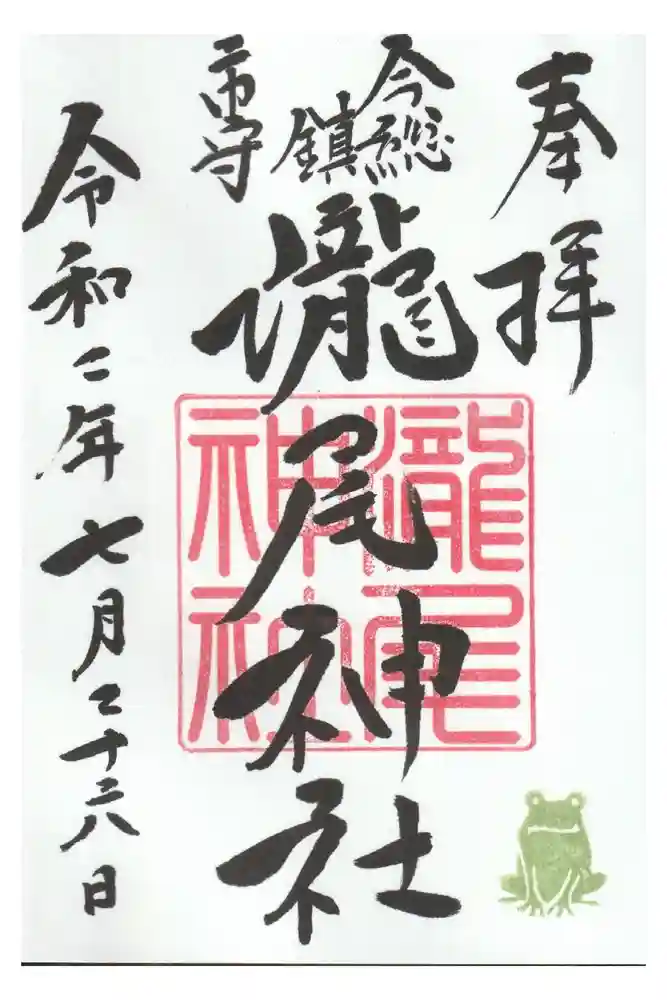 奉拝
今市
総鎮守
瀧尾神社
瀧尾
神社
令和二年七月二十六日